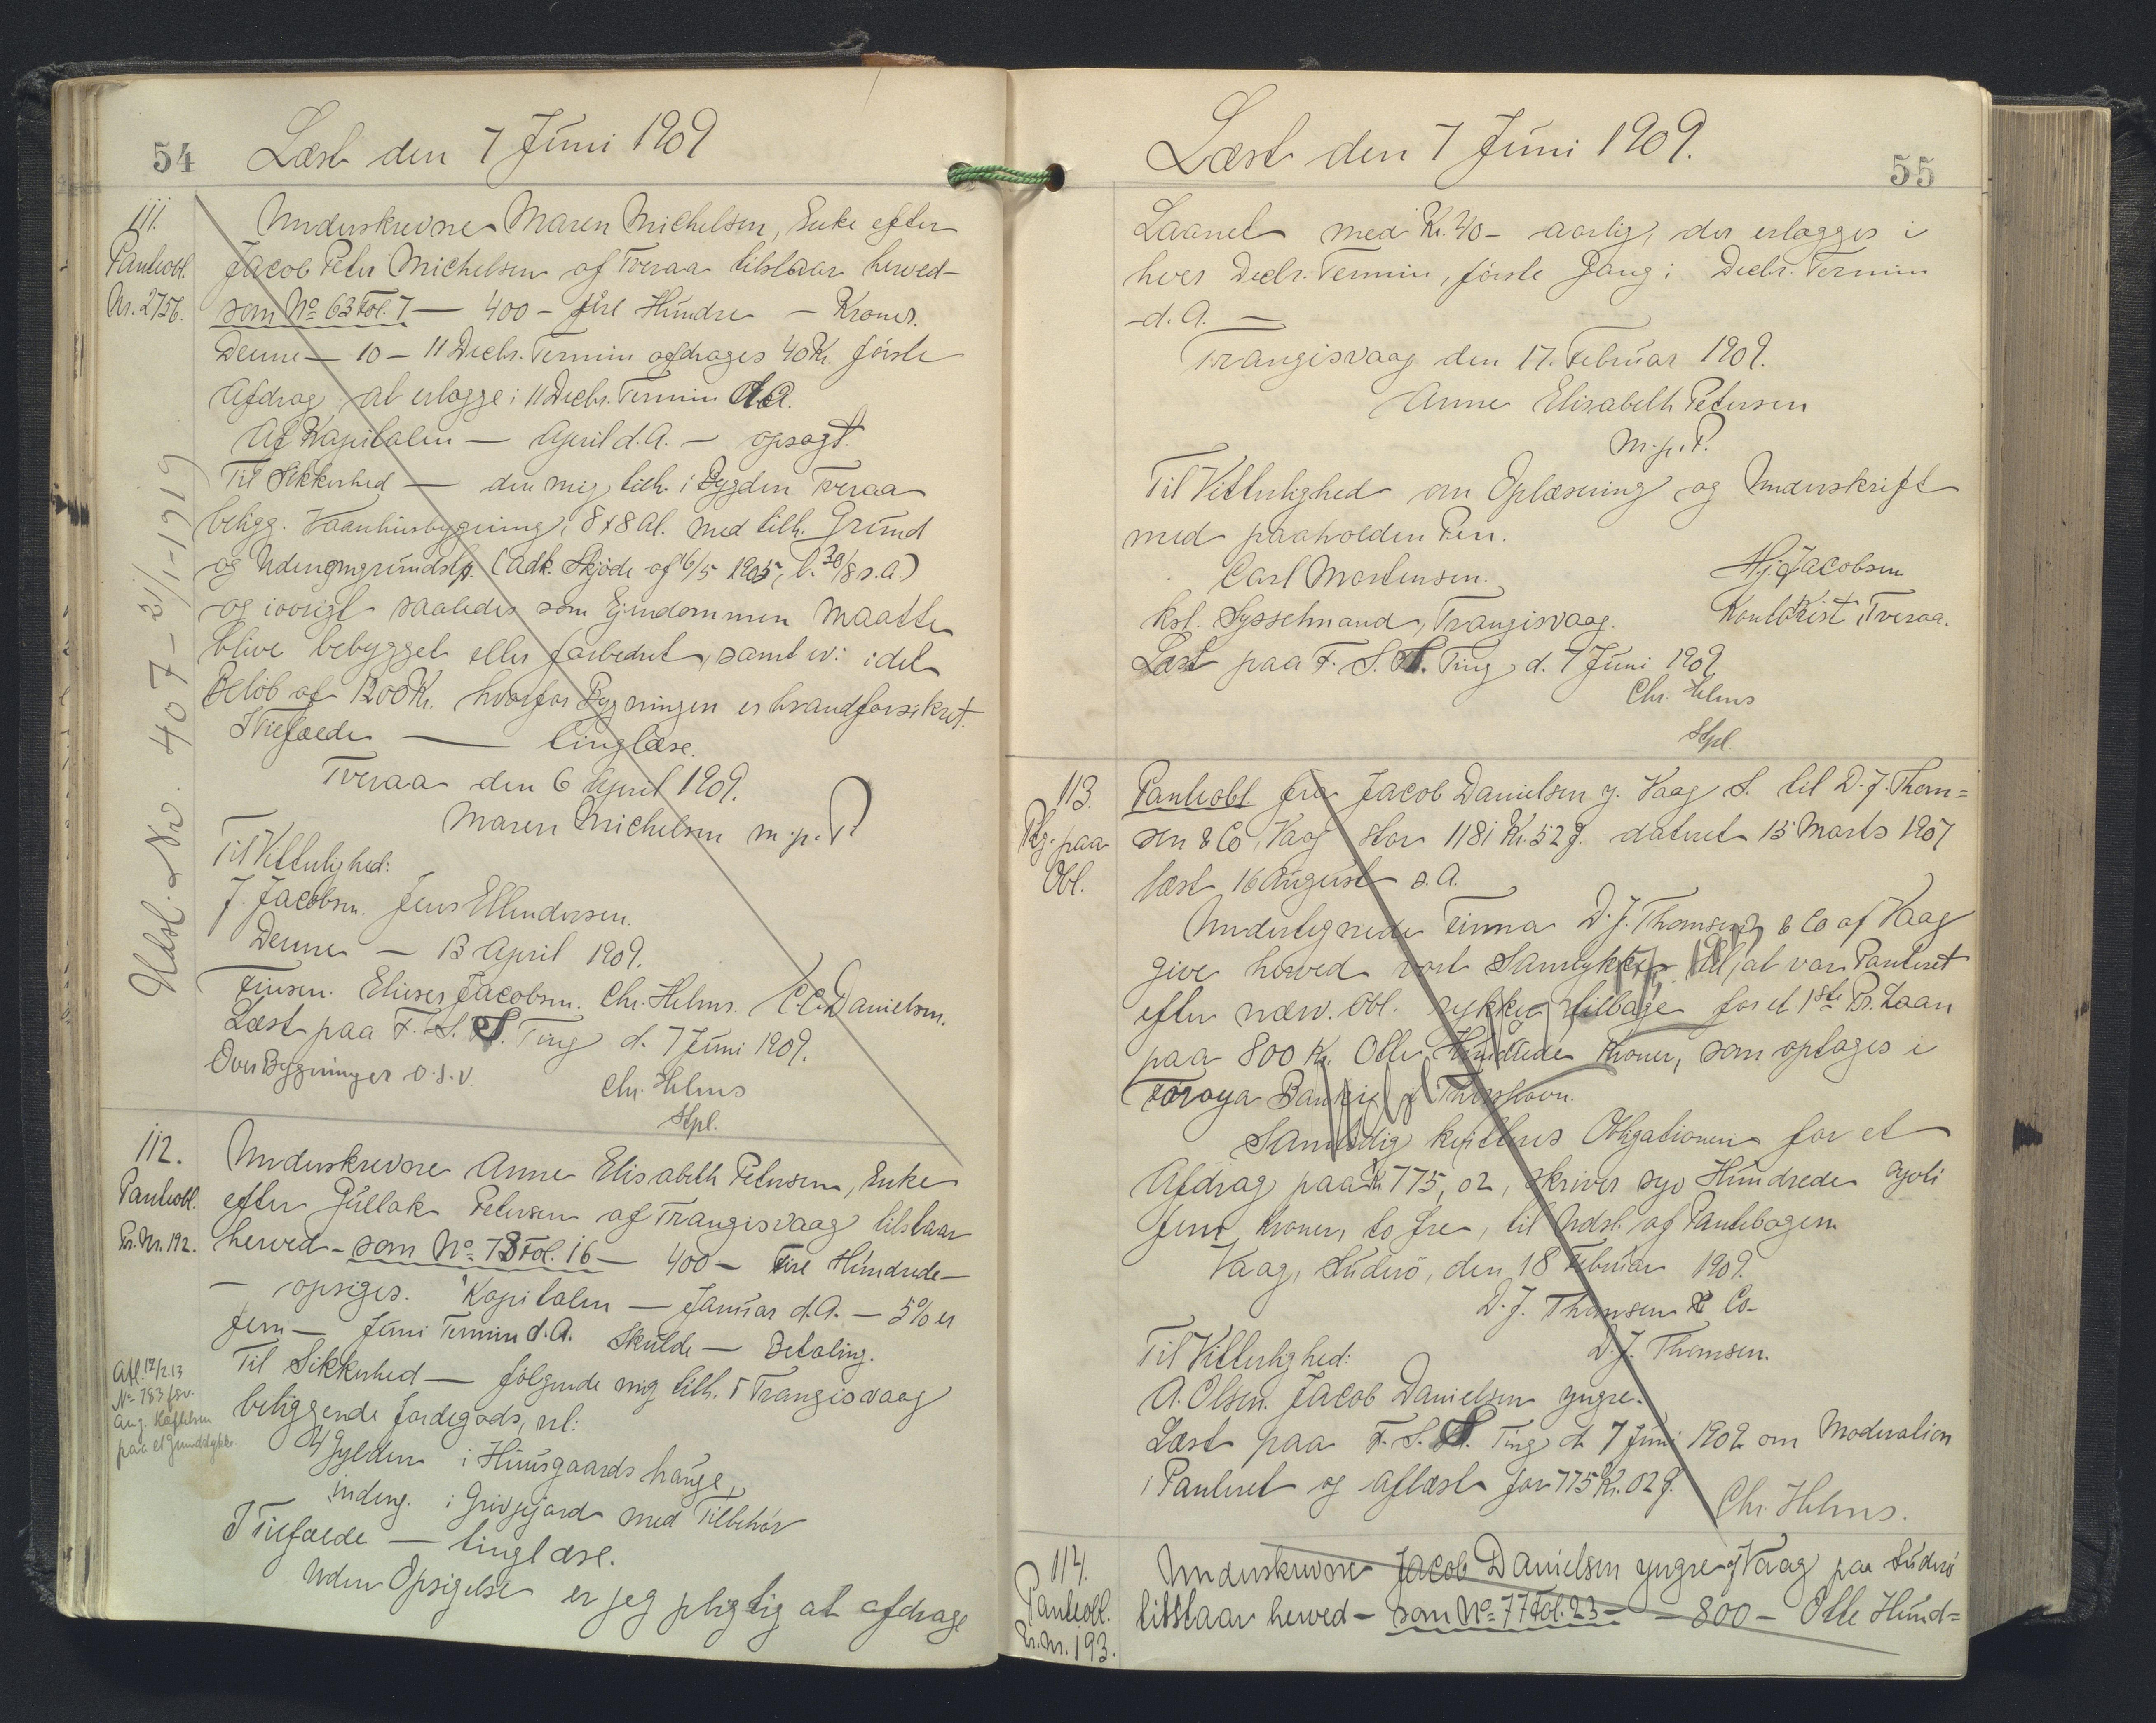 54
Læst den 7 Juni 1909
111.
Panteobl.
Nr. 2756.
Underskrevne Maren Michelsen, Enke efter
Jacob Peter Michelsen af Tveraa tilstaar herved-
som No 63 Fol. 7 — 400 - fire Hundre - Kroner.
Denne — 10 - 11 Decbr. Termin afdrages 40 Kr. første
Afdrag at erlægge i 11 Decbr. Termin d.A.
Af Kapitalen — April d.A. — opsagt.
Til Sikkerhed — den mig tilh. i Bygden Tveraa
beligg. Vaanhusbygning, 8 x 8 al. med tilh. Grund
og Udengmgrundst. (adk. Skjøde af 16/5 1905, l. 30/8 s.a.)
og iøvrigt saaledes som Ejendommen maatte
blive bebygget eller forbedret, samt ev: idet
Beløb af 1200 Kr. hvorfor Bygningen er brandforsikret.
I Tilfælde — tinglæse.
Tveraa den 6 April 1909.
Maren Michelsen m.p.P.
Til Vitterlighed:
J. Jacobsen. Jens Ellendersen.
Denne — 13 April 1909.
Finsen. Elieser Jacobsen. Chr. Helms. C.C. Danielsen.
Læst paa F. S. S. Ting d. 7 Juni 1909.
Over Bygninger o.s.v.
Chr. Helms
Stpl.
Udsl. Nr. 407 - 31/1-1919
112.
Panteobl.
Pr. Nr. 192.
Underskrevne Anne Elisabeth Petersen, Enke
efter Gullak Petersen af Trangisvaag tilstaar
herved - som No 73 Fol. 16 — 400 — Fire Hundrede —
— opsiges. Kapitalen — Januar d.A. — 5% er
fem — Juni Termin d.A. Skulde — Betaling.
Til Sikkerhed — følgende mig tilh. i Trangisvaag
beliggende Jordegods, nl:
4 Gylden i Huusgaards hauge,
indeng. i Grivejord med Tilbehør
I Tilfælde — tinglæse.
Uden Opsigelse er jeg pligtig at afdrage
Afl. 12/2 13
No 783 fsv.
ang.
paa et Grundstykke.
Læst den 7 Juni 1909.
55
Laanet med Kr. 40 - aarlig, der erlægges i
hver Decbr. Termin, første Gang i Decbr. Termin
- d. A. —
Trangisvaag den 17. Februar 1909.
Anne Elisabeth Petersen
m.p.P.
Til Vitterlighed om Oplæsning og Underskrift
med paaholden Pen.
Carl Mortensen.
kst. Sysselmand, Trangisvaag.
Hj. Jacobsen
Kontorist, Tveraa.
Læst paa F. S. S. Ting d. 7 Juni 1909
Chr. Helms
Stpl
113.
Ptg. paa
Obl.
Panteobl fra Jacob Danielsen y. Vaag S. til D. J. Thom=
sen & Co, Vaag stor 1181 Kr. 52 Ø. dateret 15 Marts 1907
læst 16 August s.A.
Undertegnede Firma D. J. Thomsen & Co af Vaag
give herved vort Samtykke til, at vor Panteret
efter nærv. Obl. rykker tilbage for et 1ste Pr. Laan
paa 800 Kr. Otte Hundrede Kroner, som optages i
Føroya Banki i Thorshavn.
Samtidig kvitteres Obligationen for et
Afdrag paa Kr 775,02, skriver syv Hundrede syvti
fem Kroner, to Øre, til Udsl. af Pantebogen.
Vaag, Suderø, den 18 Februar 1909.
D. J. Thomsen & Co
D. J. Thomsen.
Til Vitterlighed:
A. Olsen. Jacob Danielsen yngre.
Læst paa F. S. S. Ting d. 7 Juni 1909 om Moderation
i Panteret og aflæst for 775 Kr. 02 Ø.
Chr. Helms.
114.
Panteobl.
Pr. Nr. 193.
Underskrevne Jacob Danielsen yngre af Vaag paa Suderø
tilstaar herved - som No 77 Fol. 23 — — 800 — Otte Hund=